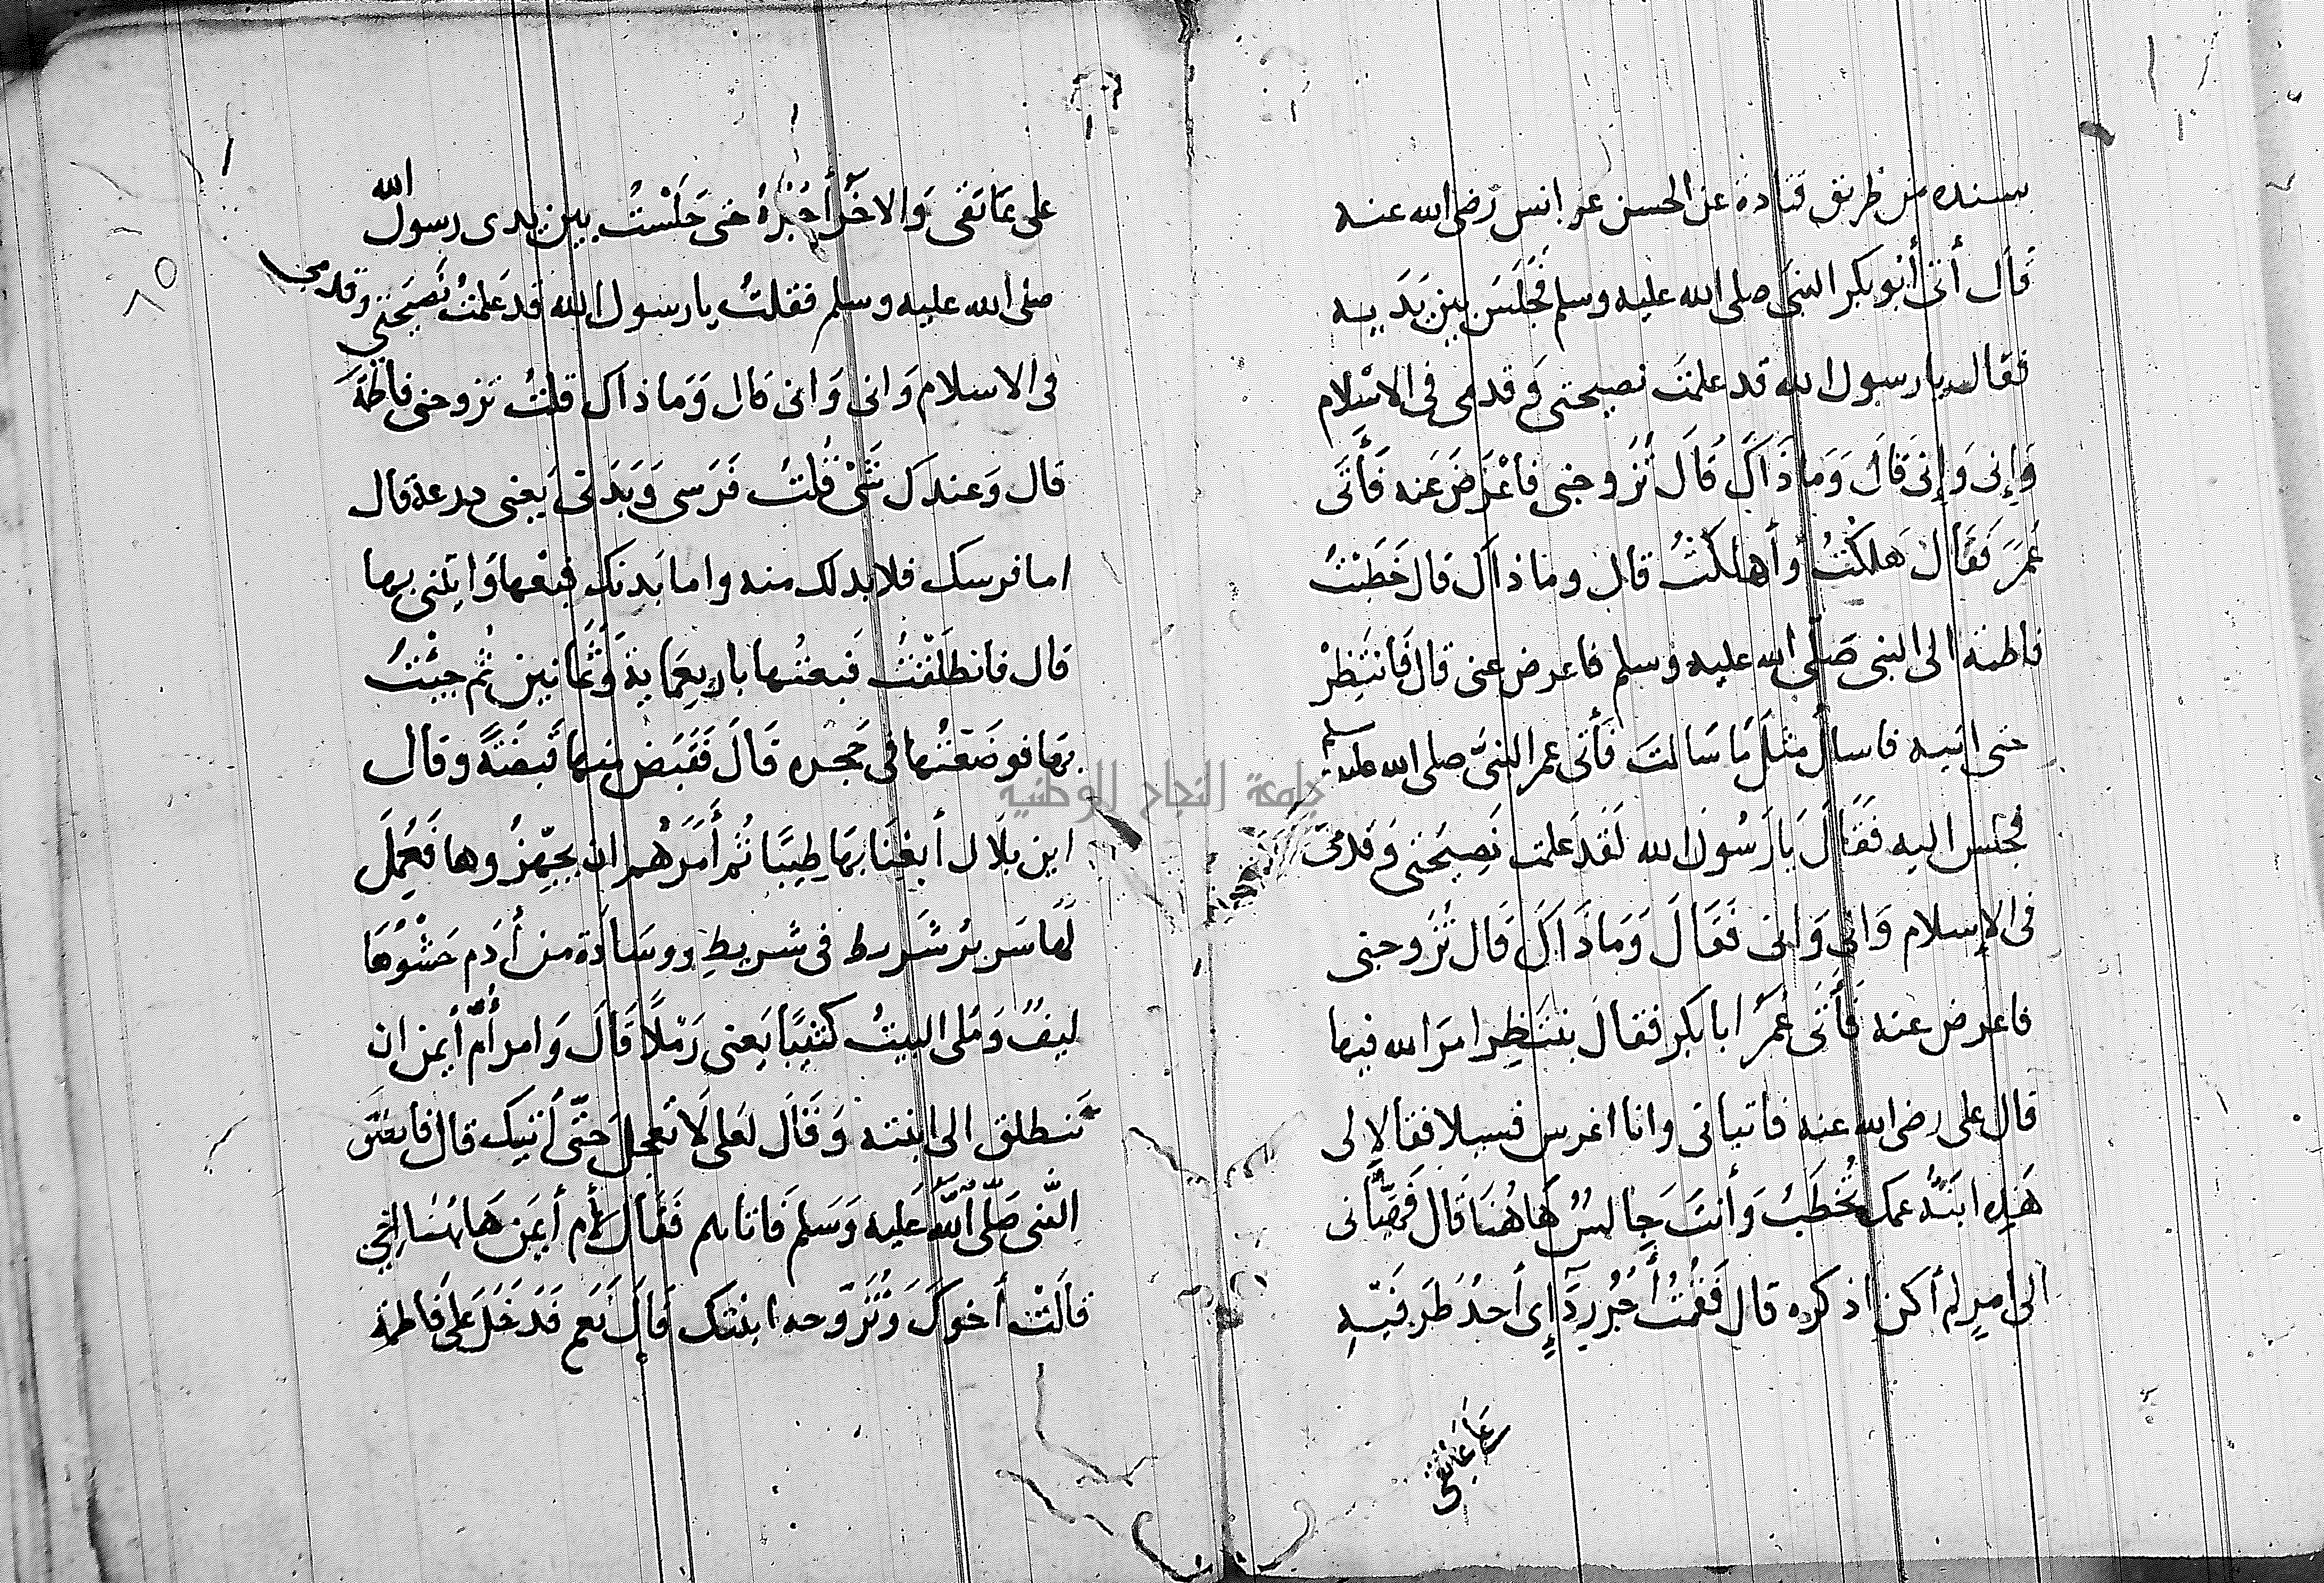 بسنده من طريق قتادة عن الحسن عن انس رضى الله عنه
قال أتى أبو بكر النبى صلى الله عليه وسلم فجَلَسَ بين يَدَيه
فقال يا رسول الله قد علمتَ نصيحتى وقدمى فى الاسْلام
وَإنى وَإنى قالَ وَمَا ذَاكَ قالَ تُزَوجنى فاعْرَضَ عَنه فَأتَى
عُمَرَ فَقَال هَلكْتُ وأهْلكتُ قال وما ذاك قال خَطَبْتُ
فاطمة الى النبى صَلّى الله عليه وسلم فاعرض عنى قال فَانتَظِرْ
حتى اتيه فاسال مثلَ مَا سَالتَ فَأتى عمر النبىَّ صلى الله عليه وسلم
فجلس اليه فَقَالَ يَا رَسُول الله لَقَد عَلمت نَصِيحَتى وَقدمى
فى الإسلام وَانى وَانى فَقَالَ وَمَا ذَاكَ قَال تُزَوجنى
فاعرض عنه فَأَتى عُمَرُ ابا بكر فقال ينتَظِر امرَ الله فيها
قال على رضى الله عنه فاتيانى وانا اغرس فسيلا فقالا لى
هَذِه ابنَةُ عمك تُخطَبُ وَأنتَ جَالسٌ هَاهُنَا قَال فَنَبَّهَانى
الى امرٍ لم أكن اذكره قال فَقُمْتُ أجُرّ رِدَآءِى أحدُ طَرَفَيْهِ
عَلَى عَاتقى
على عَاتقى وَالاخَرُ أجُرّهُ حتى جَلَسْتُ بين يدى رسول الله
صلى الله عليه وسلم فقلتُ يا رسول الله قد عَلمتَ نَصيحَتى وقدمى
فى الاسلام وَانى وَانى قال وَمَا ذاك قلتُ تزوجنى فاطمَةَ
قال وَعندك شَىْ قُلتُ فَرَسى وَبَدَنى يَعنى درعه قال
اما فرسك فلا بد لك منه واما بَدنك فبعْها وَايتنى بها
قال فانطلَقْتُ فبعتُها باربعماية وَثمانين ثم جئتُ
بهَا فوضَعْتُها فى حَجره قَالَ فَقَبَضَ منها قَبضَةً وقال
اين بلَال أبغِنَا بهَا طِيبًا ثم أَمَرَهُم ان يجهّزُوها فَعُمِلَ
لَهَا سَريرُ شَريط فى شريطٍ ووسَادَة من أَدَم حَشْوُهَا
ليفٌ وَمُلى البَيتُ كثِيبًا يَعنى رَمْلًا قَالَ وَامر أُمَّ أَيمن ان
تَنطلق الى ابنته وَقَال لعَلى لَا تعجل حَتّى أتيك قال فانتظَر
النَّبى صَلّى اللّه عَليه وَسَلم فَاتاهم فَقَال لأم أيمَن هَا هُنا اخى
قالَتْ أخوكَ وَتُزَوّجه ابنتك قَالَ نَعَم فَدَخَلَ عَلى فَاطمة
٦٥
جامعة النجاح الوطنية